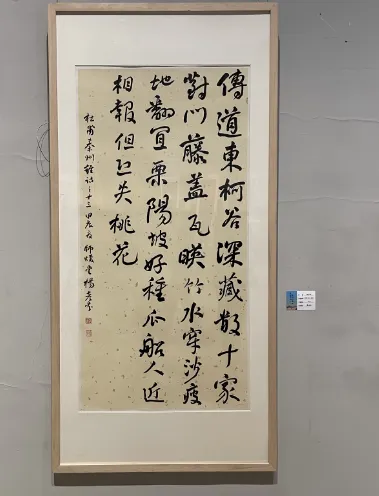 傳道東柯谷深藏數十家
對門藤蓋瓦暎竹水穿沙瘦
地翻宜粟陽坡好種瓜船人近
相報但恐失桃花
杜甫秦州雜詩之十三甲辰夏